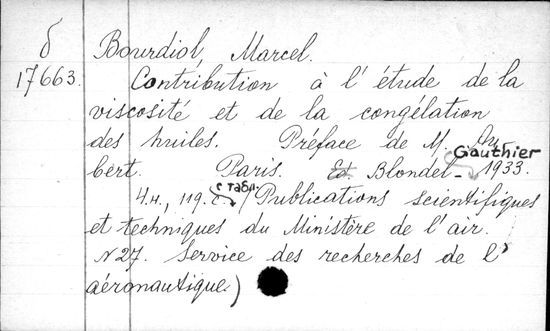 б Bourdiol, Marcel.
17663. Contribution à l'étude de la
viscosité et de la congélation
des huiles. Préface de M. Au
bert. Paris. Blondel- Gauthier 1933.
4н., 119 с. с табл. (Publications scientifiques
et techniques du Ministère de l'air.
N 27. Service des recherches de l'
aéronautique.)